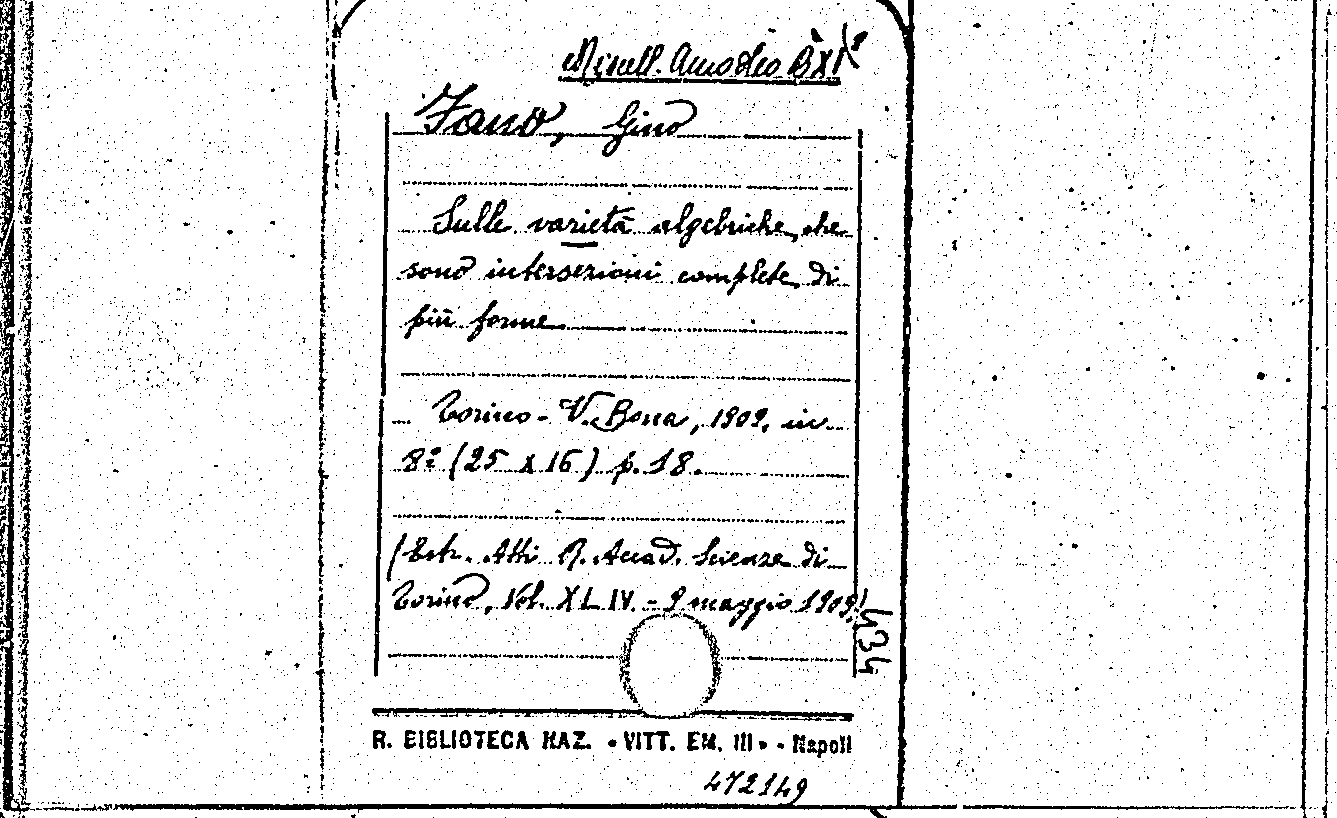 Miscell. Amodeo B
Fano, Gino
Sulle varietà algebriche, che
sono intersezioni complete di
più forme
Torino - V. Bona, 1909, in
8º (25 x 16) p. 18.
(Estr. Atti R. Accad. Scienze di
Torino, Vol. XLIV. - 9 maggio 1909)
434
R. BIBLIOTECA NAZ. « VITT. EM. III » - Napoli
472149